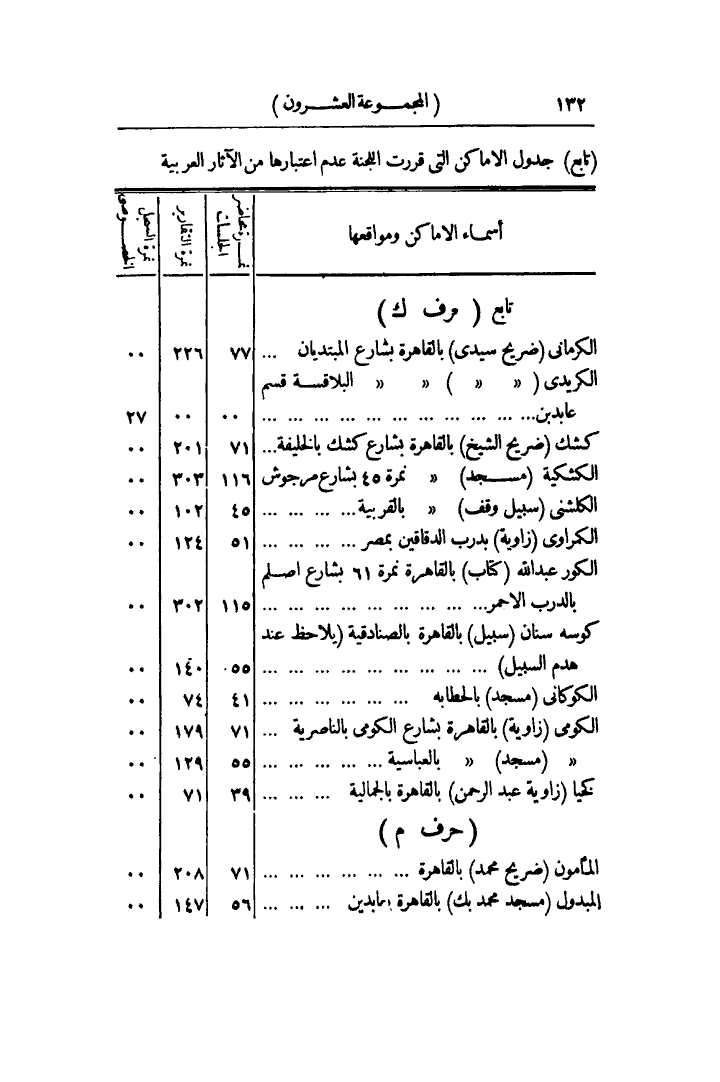 ١٣٢ (المجموعة العشرون)
(تابع) جدول الاماكن التى قررت اللجنة عدم اعتبارها من الآثار العربية
أسماء الاماكن ومواقعها نمرة محاضر الجلسات نمرة التقارير نمرة السجل الخصوصى
تابع (حرف ك)
الكرمانى (ضريح سيدى) بالقاهرة بشارع المبتديان ... ٧٧ ٢٢٦ ٠٠
الكريدى ( » » ) » » البلاقسة قسم
عابدين... ... ... ... ... ... ... ... ... ... ... ٠٠ ٠٠ ٢٧
كشك (ضريح الشيخ) بالقاهرة بشارع كشك بالخليفة... ٧١ ٢٠١ ٠٠
الكشكية (مسجد) » نمرة ٤٥ بشارع مرجوش ١١٦ ٣٠٣ ٠٠
الكلشنى (سبيل وقف) » بالقربية... ... ... ... ٤٥ ١٠٢ ٠٠
الكمراوى (زاوية) بدرب الدقاقين بمصر ... ... ... ... ٥١ ١٢٤ ٠٠
الكور عبدالله (كتاب) بالقاهرة نمرة ٦١ بشارع اصلم
بالدرب الاحمر... ... ... ... ... ... ... ... ... ١١٥ ٣٠٢ ٠٠
كوسه سنان (سبيل) بالقاهرة بالصنادقية (يلاحظ عند
هدم السبيل) ... ... ... ... ... ... ... ... ... ٥٥ ١٤٠ ٠٠
الكوكانى (مسجد) بالحطابه ... ... ... ... ... ... ٤١ ٧٤ ٠٠
الكومى (زاوية) بالقاهرة بشارع الكومى بالناصرية ... ٧١ ١٧٩ ٠٠
» (مسجد) » بالعباسية ... ... ... ... ... ٥٥ ١٢٩ ٠٠
كخيا (زاوية عبد الرحمن) بالقاهرة بالجمالية ... ... ... ٣٩ ٧١ ٠٠
(حرف م)
المأمون (ضريح محمد) بالقاهرة ... ... ... ... ... ... ٧١ ٢٠٨ ٠٠
المبدول (مسجد محمد بك) بالقاهرة بعابدين ... ... ... ٥٦ ١٤٧ ٠٠